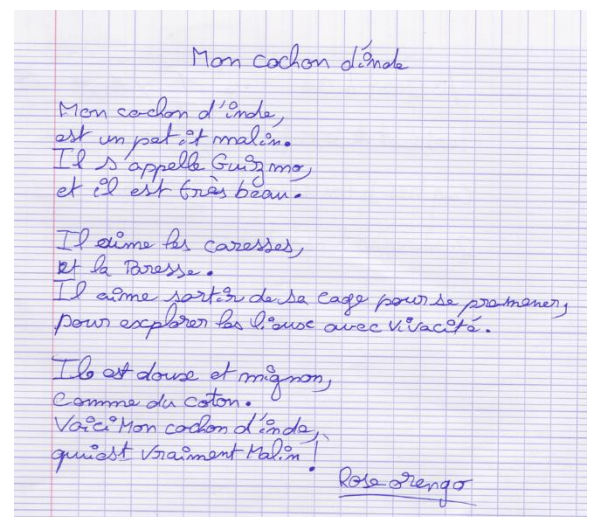 Mon cochon d'inde
Mon cochon d'inde,
est un petit malin.
Il s'appelle Guizmo,
et il est très beau.
Il aime les caresses,
et la Paresse.
Il aime sortir de sa cage pour se promener,
pour explorer les lieux avec vivacité.
Il est doux et mignon,
comme du coton.
Voici Mon cochon d'inde,
qui est vraiment Malin !
Rose orengo